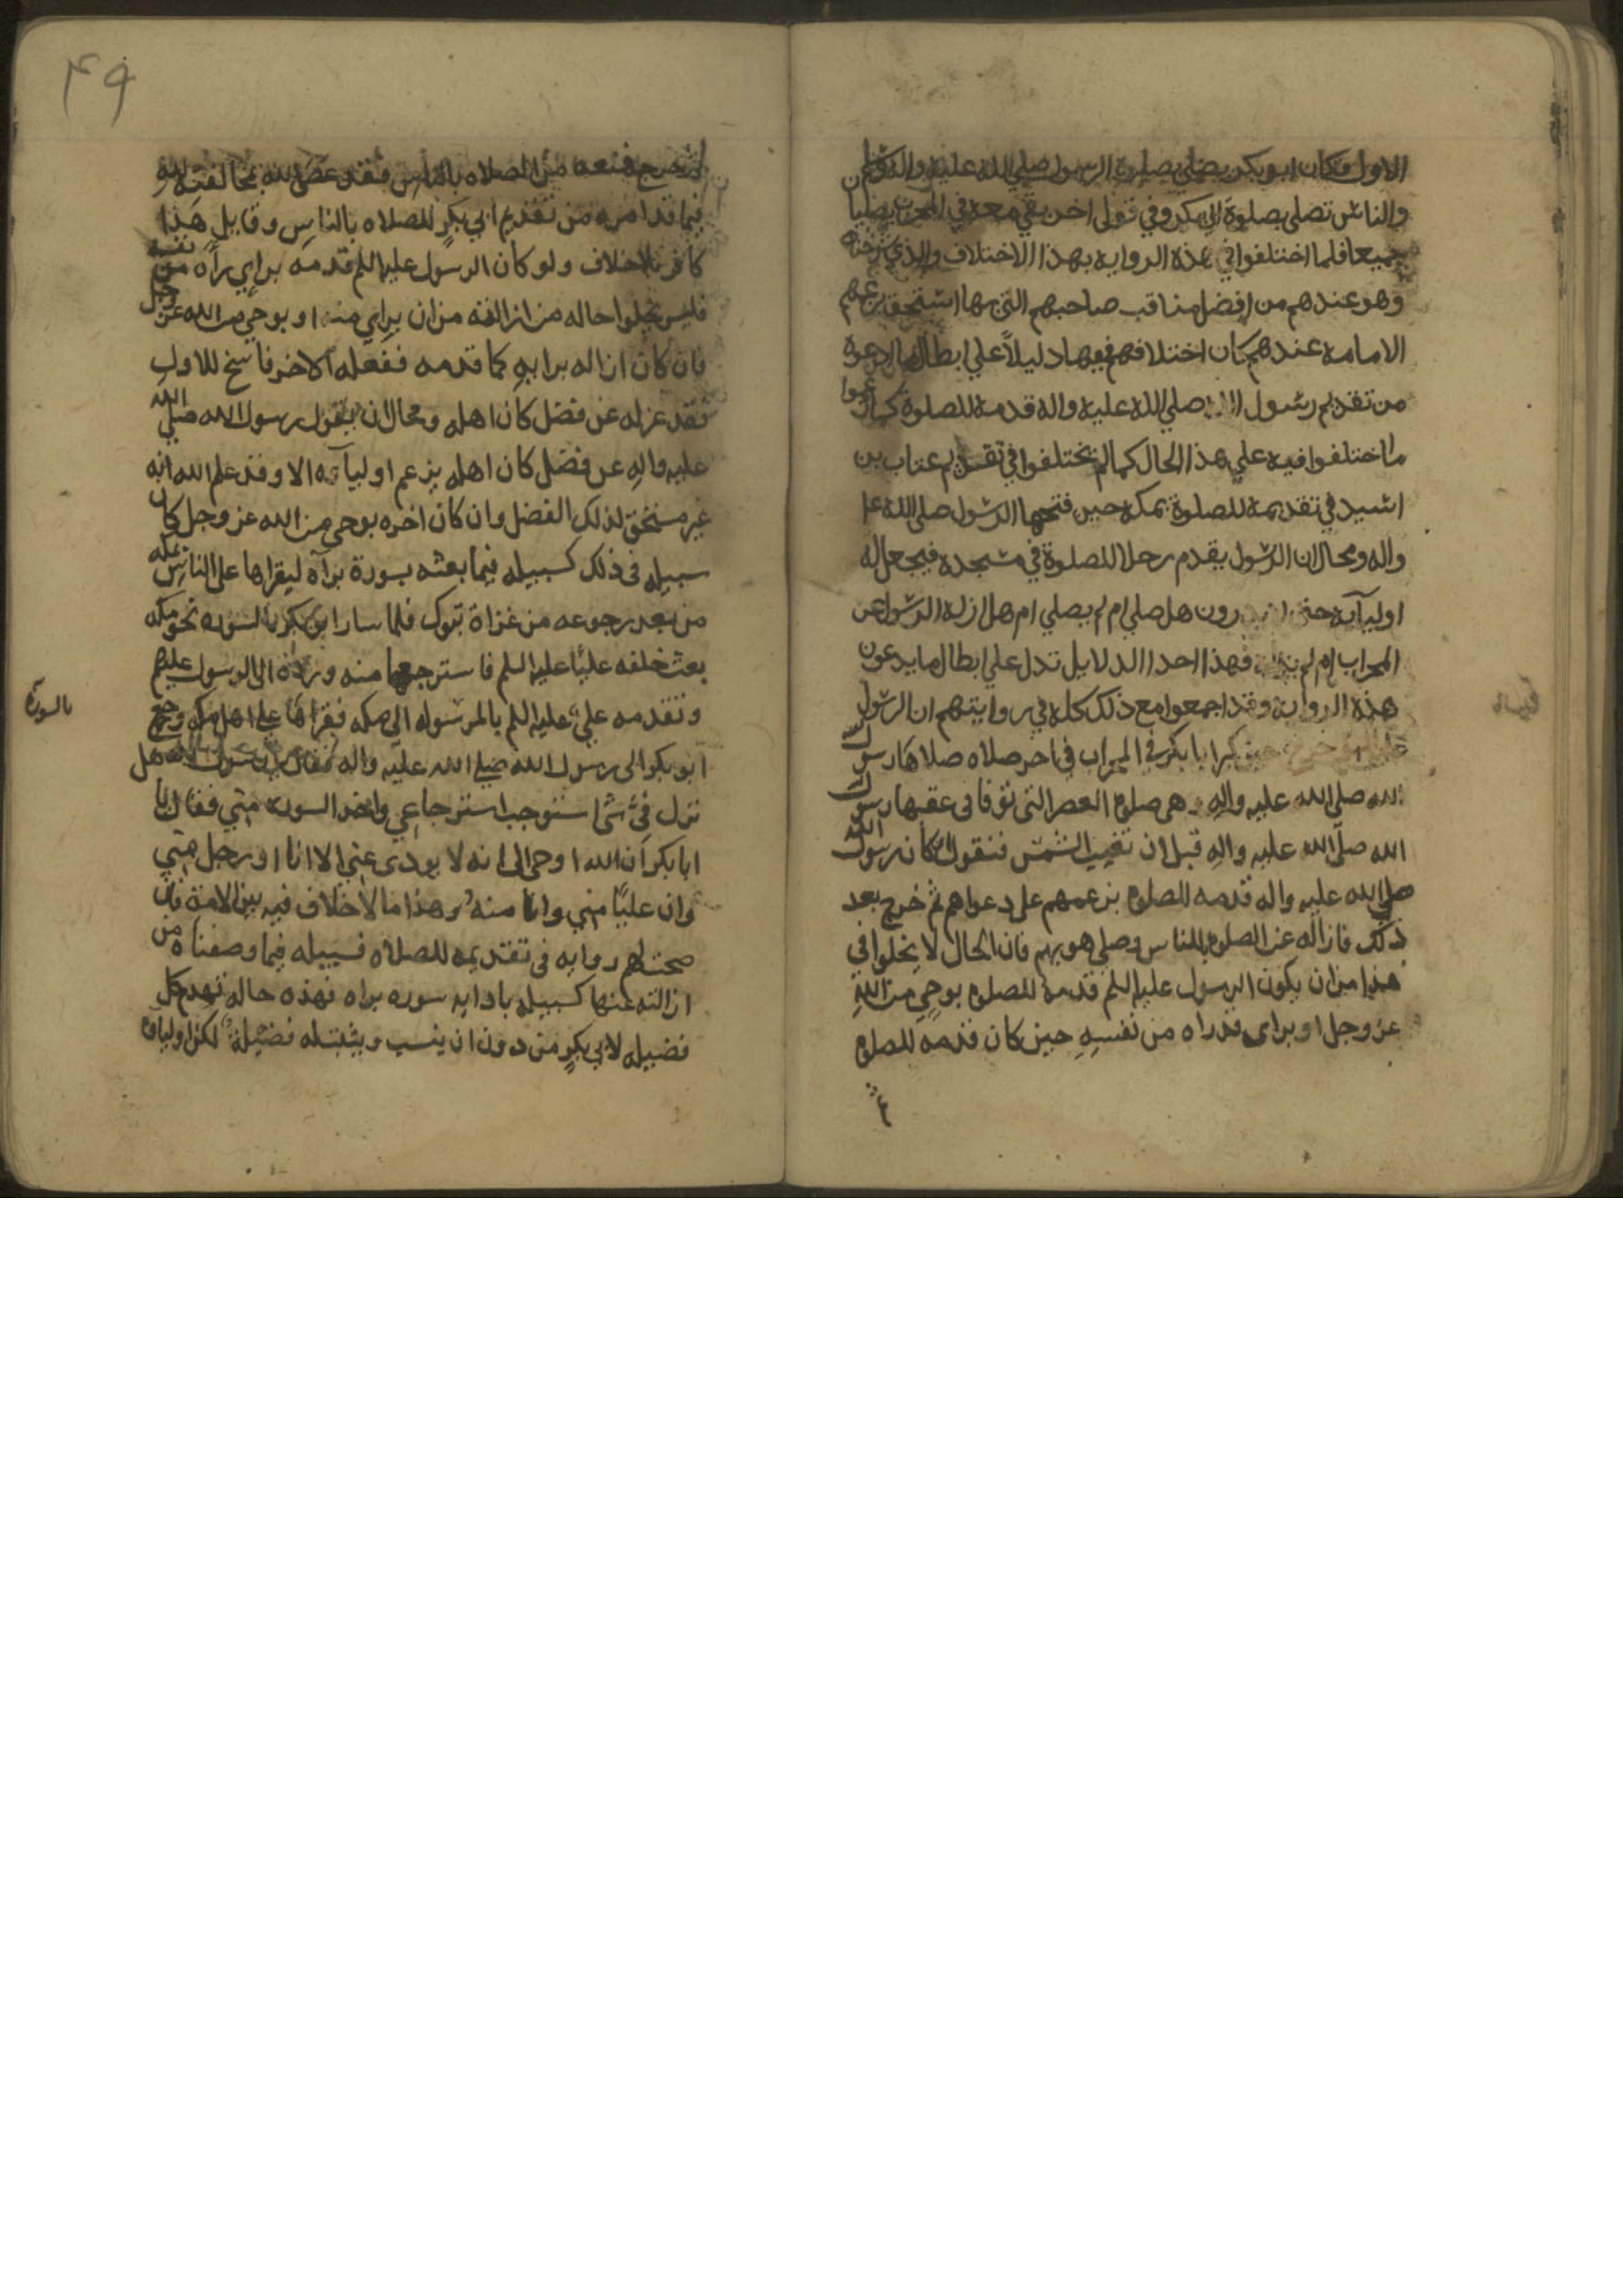 الاول فكان ابو بكر يصلي بصلوة الرسول صلي الله عليه واله وسلم
والناس تصلي بصلوة ابي بكر وفي قول اخر بقي معه في المحراب يصليا
جميعا فلما اختلفوا في هذه الرواية بهذا الاختلاف والذي شرحناه
وهو عندهم من افضل مناقب صاحبهم التي بها استحق بزعمهم
الامامة عندهم كان اختلافهم فيها دليلاً علي ابطال ما ادعوه
من تقديم رسول الله صلي الله عليه واله قدمه للصلوة كما زعموا
ما اختلفوا فيه علي هذا الحال كما لم يختلفوا في تقديم عتاب بن
اسيد في تقديمه للصلوة بمكة حين فتحها الرسول صلى الله علـ
واله ومحال ان الرسول يقدم رجلا للصلوة في مسجده فيجعل له
اوليآيه حتى يدرون هل صلي ام لم يصلي ام هل ازله الرسول عن
المحراب ام لم فهذا احد الدلايل تدل علي ابطال ما يدعون
هذه الرواية وقد اجمعوا مع ذلك كله في روايتهم ان الرسول
ابا بكر في المحراب في اخر صلاه صلاها رسول
الله صلى الله عليه واله وهي صلوة العصر التي توفا في عقبها رسول
الله صلّى الله عليه واله قبل ان تغيب الشمس فنقول ان كان رسول الله
صلى الله عليه واله قدمه للصلوة بزعمهم على دعواهم ثم خرج بعد
ذلك فازاله عن الصلوة بالناس وصلى هو بهم فان الحال لا يخلوا في
هذا من ان يكون الرسول عليه السلم قدمه للصلوة بوحي من الله
عز وجل او براي قد راه من نفسه حين كان قدمه للصلوة
٤٩
ثم خرج فمنعه من الصلاه بالناس فقد عصى الله بمخالفته لله
فيما قد امره من تقديم ابي بكر للصلاه بالناس وقايل هذا
كافر بلا خلاف ولو كان الرسول عليه السلم قدمه براي رآه من نفسه
فليس يخلوا حاله من ازالته من ان براي منه او بوحي من الله عز وجل
فان كان ازاله برايه كما قدمه ففعله الاخر فاسخ للاول
فقد عزله عن فضل كان اهله ومحال ان يقول رسول الله صلى الله
عليه واله عن فضل كان اهله بزعم اوليآئه الا وقد علم الله انه
غير مستحق لذلك الفضل وان كان اخره بوحي من الله عز وجل كان
سبيله في ذلك كسبيله فيما بعثه بسورة برآه ليقراها على الناس بمكه
من بعد رجوعه من غزاة تبوك فلما سار ابو بكر بالسوره نحو مكه
بعث خلفه عليًا عليه السلم فاسترجعها منه ورده الى الرسول عليهم
وتقدمه علي عليه السلم بالمرسوله الى مكه فقراها على اهل مكه ورجع
بالسورة
ابو بكر الى رسول الله صلى الله عليه واله فقال يا رسول الله هل
نزل فيّ شئ استوجب استرجاعي واخذ السوره مني فقال يا
ابا بكر ان الله اوحى الى انه لا يودى عني الا انا او رجل مني
وان عليًا مني وانا منه وهذا ما لا خلاف فيه بين الامة فان
صحت لهم روايه في تقديمه للصلاه فسبيله فيما وصفناه من
ازالته عنها كسبيله باداية سوره براه فهذه حاله تهدم كل
فضيله لابي بكر من دون ان ينسب ويثبت له فضيلة لكن اولياوه